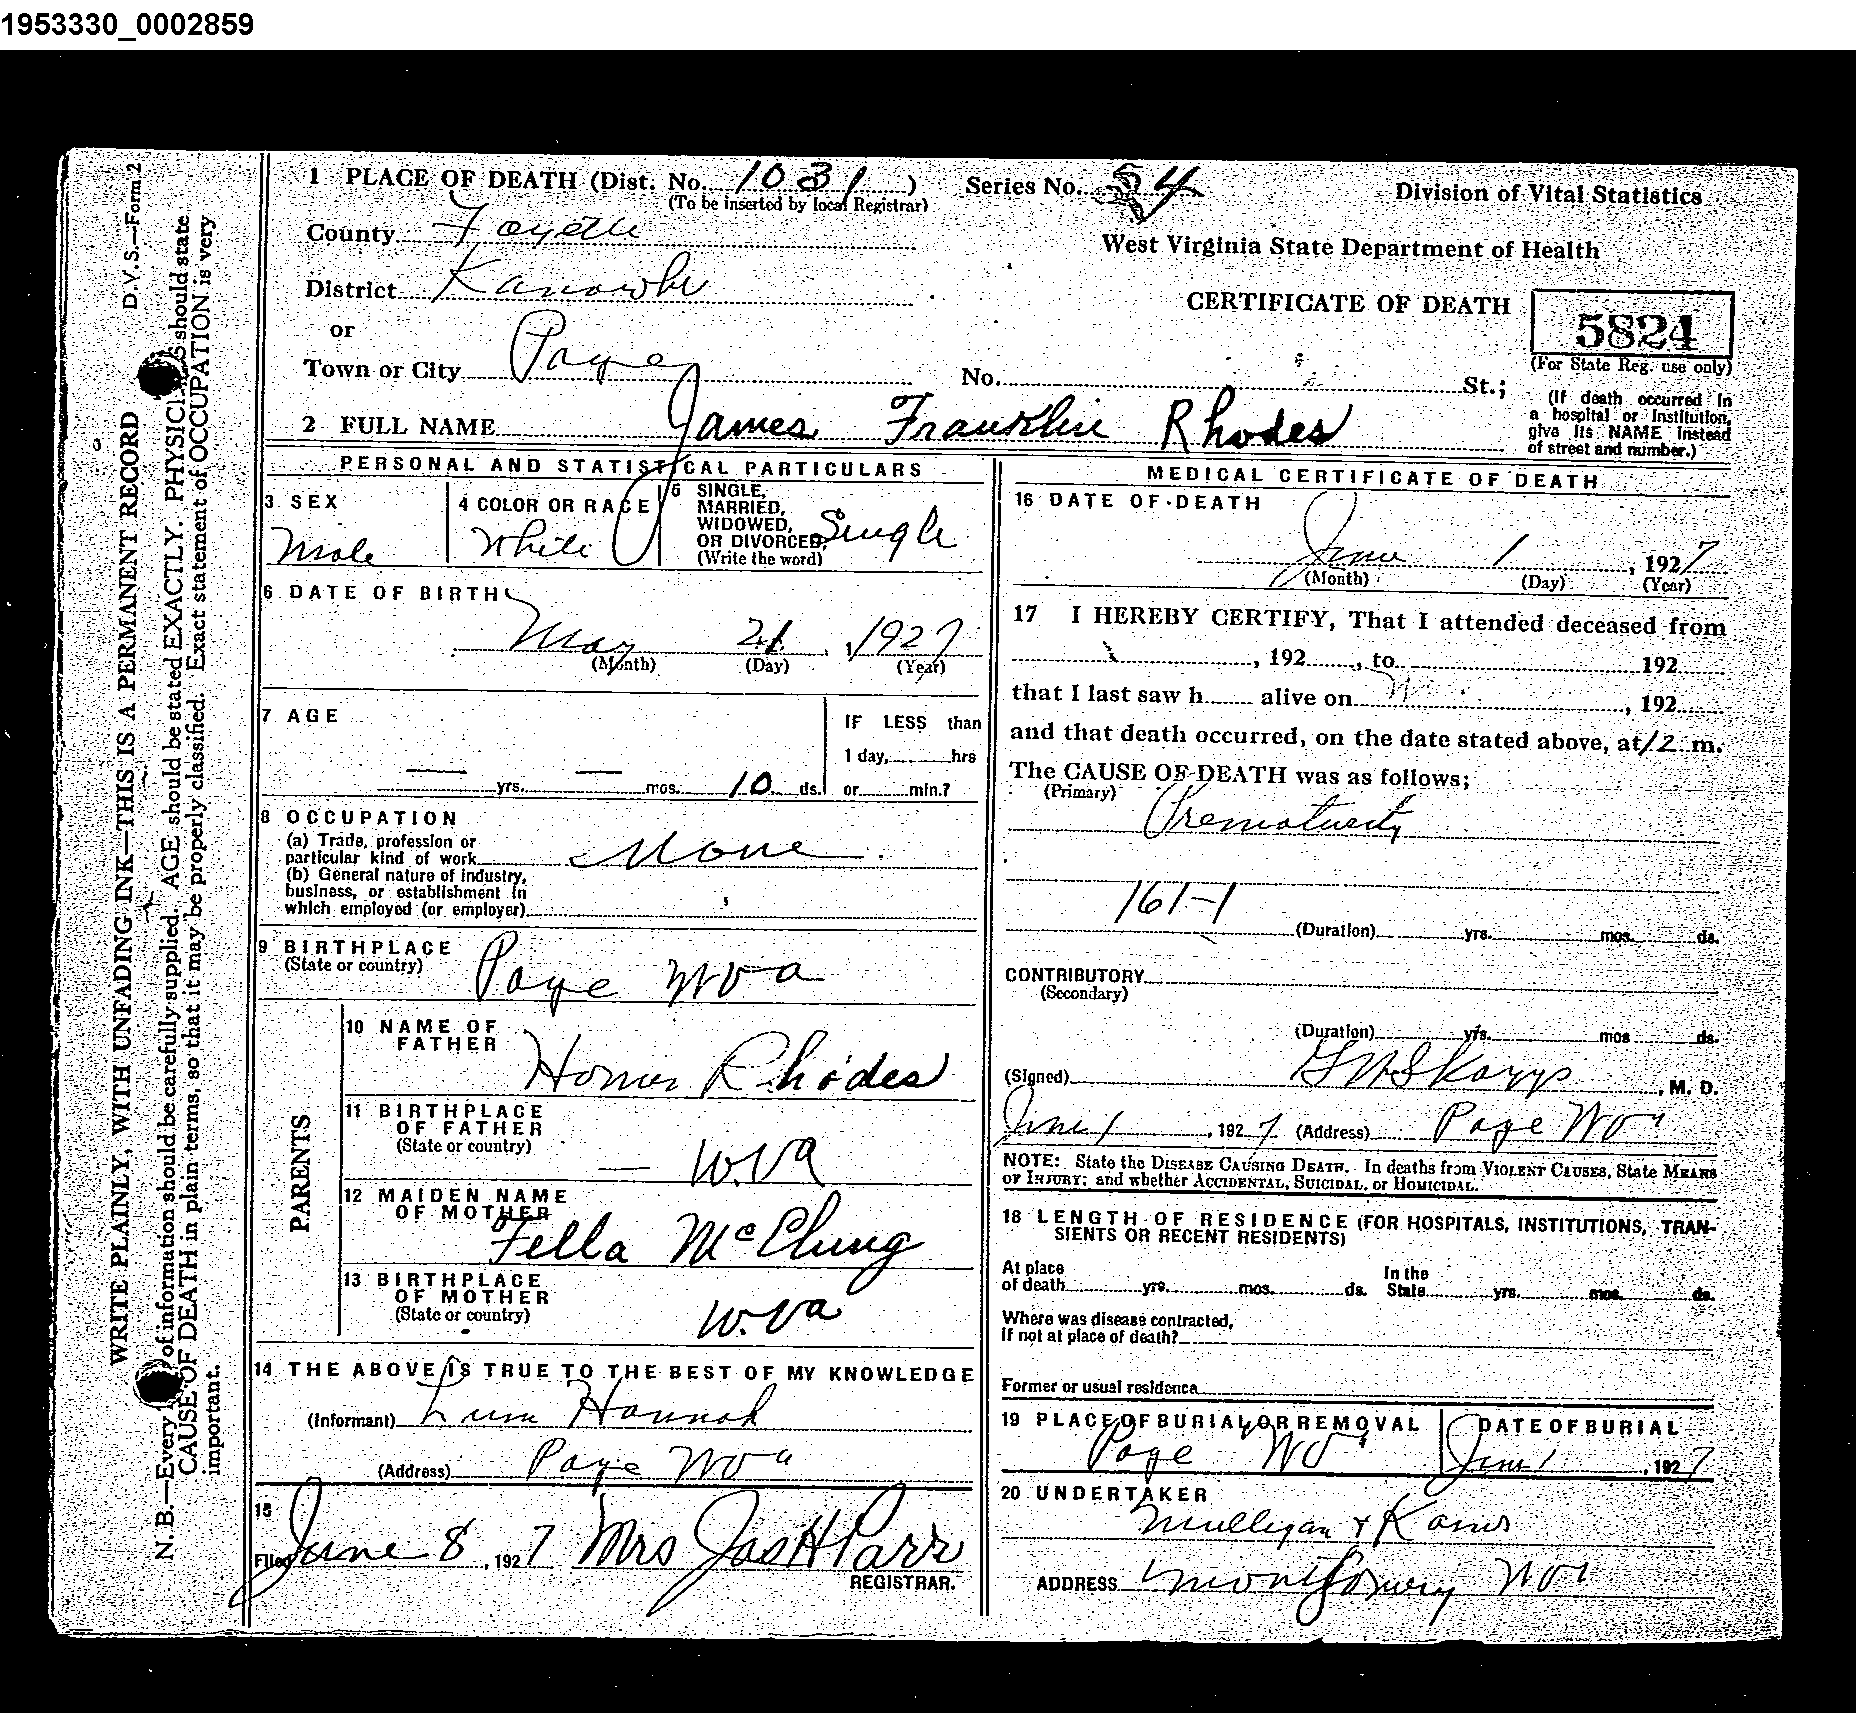 1953330_0002859
D.V.S.—Form 2
WRITE PLAINLY, WITH UNFADING INK—THIS IS A PERMANENT RECORD
N. B.—Every of information should be carefully supplied. AGE should be stated EXACTLY. PHYSICI S should state
CAUSE OF DEATH in plain terms, so that it may be properly classified. Exact statement of OCCUPATION is very
important.
1 PLACE OF DEATH (Dist. No. 1031 ) Series No. 54
(To be inserted by local Registrar)
Division of Vital Statistics
County Fayette
West Virginia State Department of Health
District Kanawha
CERTIFICATE OF DEATH
5824
(For State Reg. use only)
or
Town or City Page No. St.;
(If death occurred in
a hospital or institution,
give its NAME instead
of street and number.)
2 FULL NAME James Franklin Rhodes
PERSONAL AND STATISTICAL PARTICULARS
3 SEX
Male
4 COLOR OR RACE
White
5 SINGLE,
MARRIED,
WIDOWED,
OR DIVORCED, Single
(Write the word)
6 DATE OF BIRTH
May 21, 1927
(Month) (Day) (Year)
7 AGE
IF LESS than
1 day, hrs
— yrs. — mos. 10 ds. or min.?
8 OCCUPATION
(a) Trade, profession or
particular kind of work None
(b) General nature of industry,
business, or establishment in
which employed (or employer)
9 BIRTHPLACE
(State or country) Page W Va
PARENTS
10 NAME OF
FATHER
Homer Rhodes
11 BIRTHPLACE
OF FATHER
(State or country)
— W.Va
12 MAIDEN NAME
OF MOTHER
Fella McClung
13 BIRTHPLACE
OF MOTHER
(State or country) W.Va
14 THE ABOVE IS TRUE TO THE BEST OF MY KNOWLEDGE
(Informant) Lum Hannah
(Address) Page W Va
15
Filed June 8, 1927 Mrs Jas H Parr
REGISTRAR.
MEDICAL CERTIFICATE OF DEATH
16 DATE OF DEATH
June 1, 1927
(Month) (Day) (Year)
17 I HEREBY CERTIFY, That I attended deceased from
, 192 , to 192
that I last saw h alive on , 192
and that death occurred, on the date stated above, at 12 m.
The CAUSE OF DEATH was as follows;
(Primary)
Prematurity
161-1
(Duration) yrs. mos. ds.
CONTRIBUTORY
(Secondary)
(Duration) yrs. mos ds.
(Signed) , M. D.
June 1, 1927 (Address) Page W Va
NOTE: State the DISEASE CAUSING DEATH. In deaths from VIOLENT CAUSES, State MEANS
OF INJURY; and whether ACCIDENTAL, SUICIDAL, or HOMICIDAL.
18 LENGTH OF RESIDENCE (FOR HOSPITALS, INSTITUTIONS, TRAN-
SIENTS OR RECENT RESIDENTS)
At place
of death yrs. mos. ds. In the
State yrs. mos. ds.
Where was disease contracted,
if not at place of death?
Former or usual residence
19 PLACE OF BURIAL OR REMOVAL
Page W V
DATE OF BURIAL
June 1, 1927
20 UNDERTAKER
Mulligan &
ADDRESS Montgomery W Va